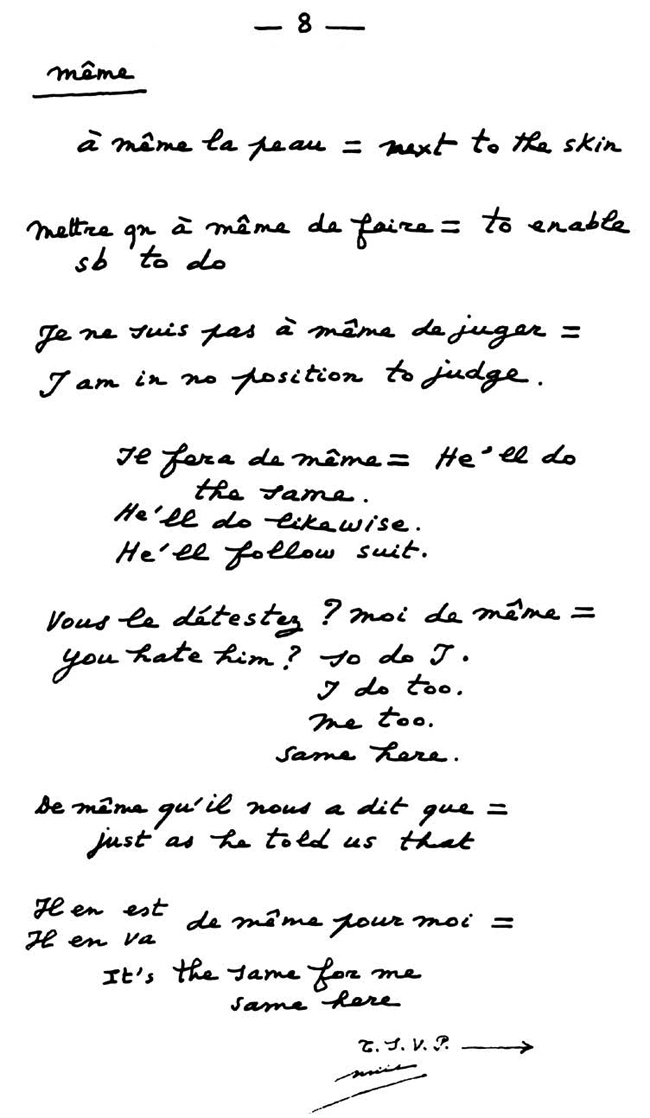 — 8 —
même
à même la peau = next to the skin
mettre qn à même de faire = to enable
sb to do
Je ne suis pas à même de juger =
I am in no position to judge.
Il fera de même = He'll do
the same.
He'll do likewise.
He'll follow suit.
Vous le détestez ? moi de même =
you hate him ? so do I.
I do too.
me too.
same here.
De même qu'il nous a dit que =
just as he told us that
Il en est
Il en va de même pour moi =
It's the same for me
same here
T. S. V. P. →